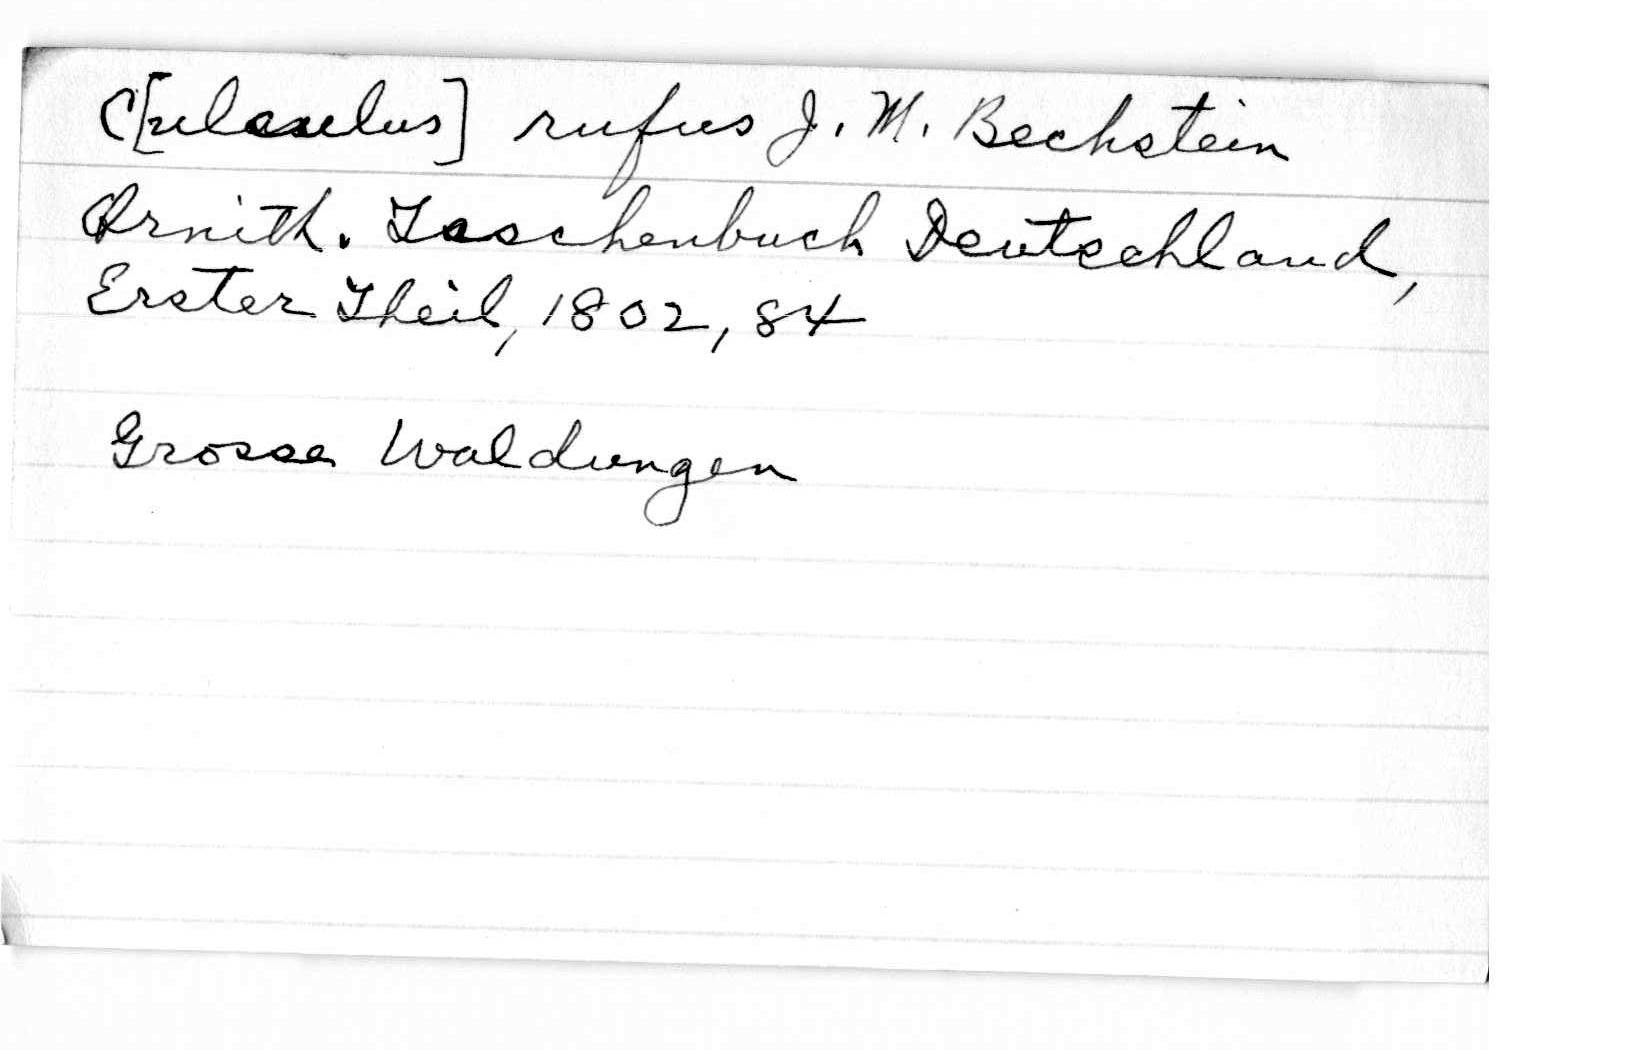 C[uculus] rufus J. M. Bechstein
Ornith. Taschenbuch Deutschland,
Erster Theil, 1802, 84
Grosse Waldungen